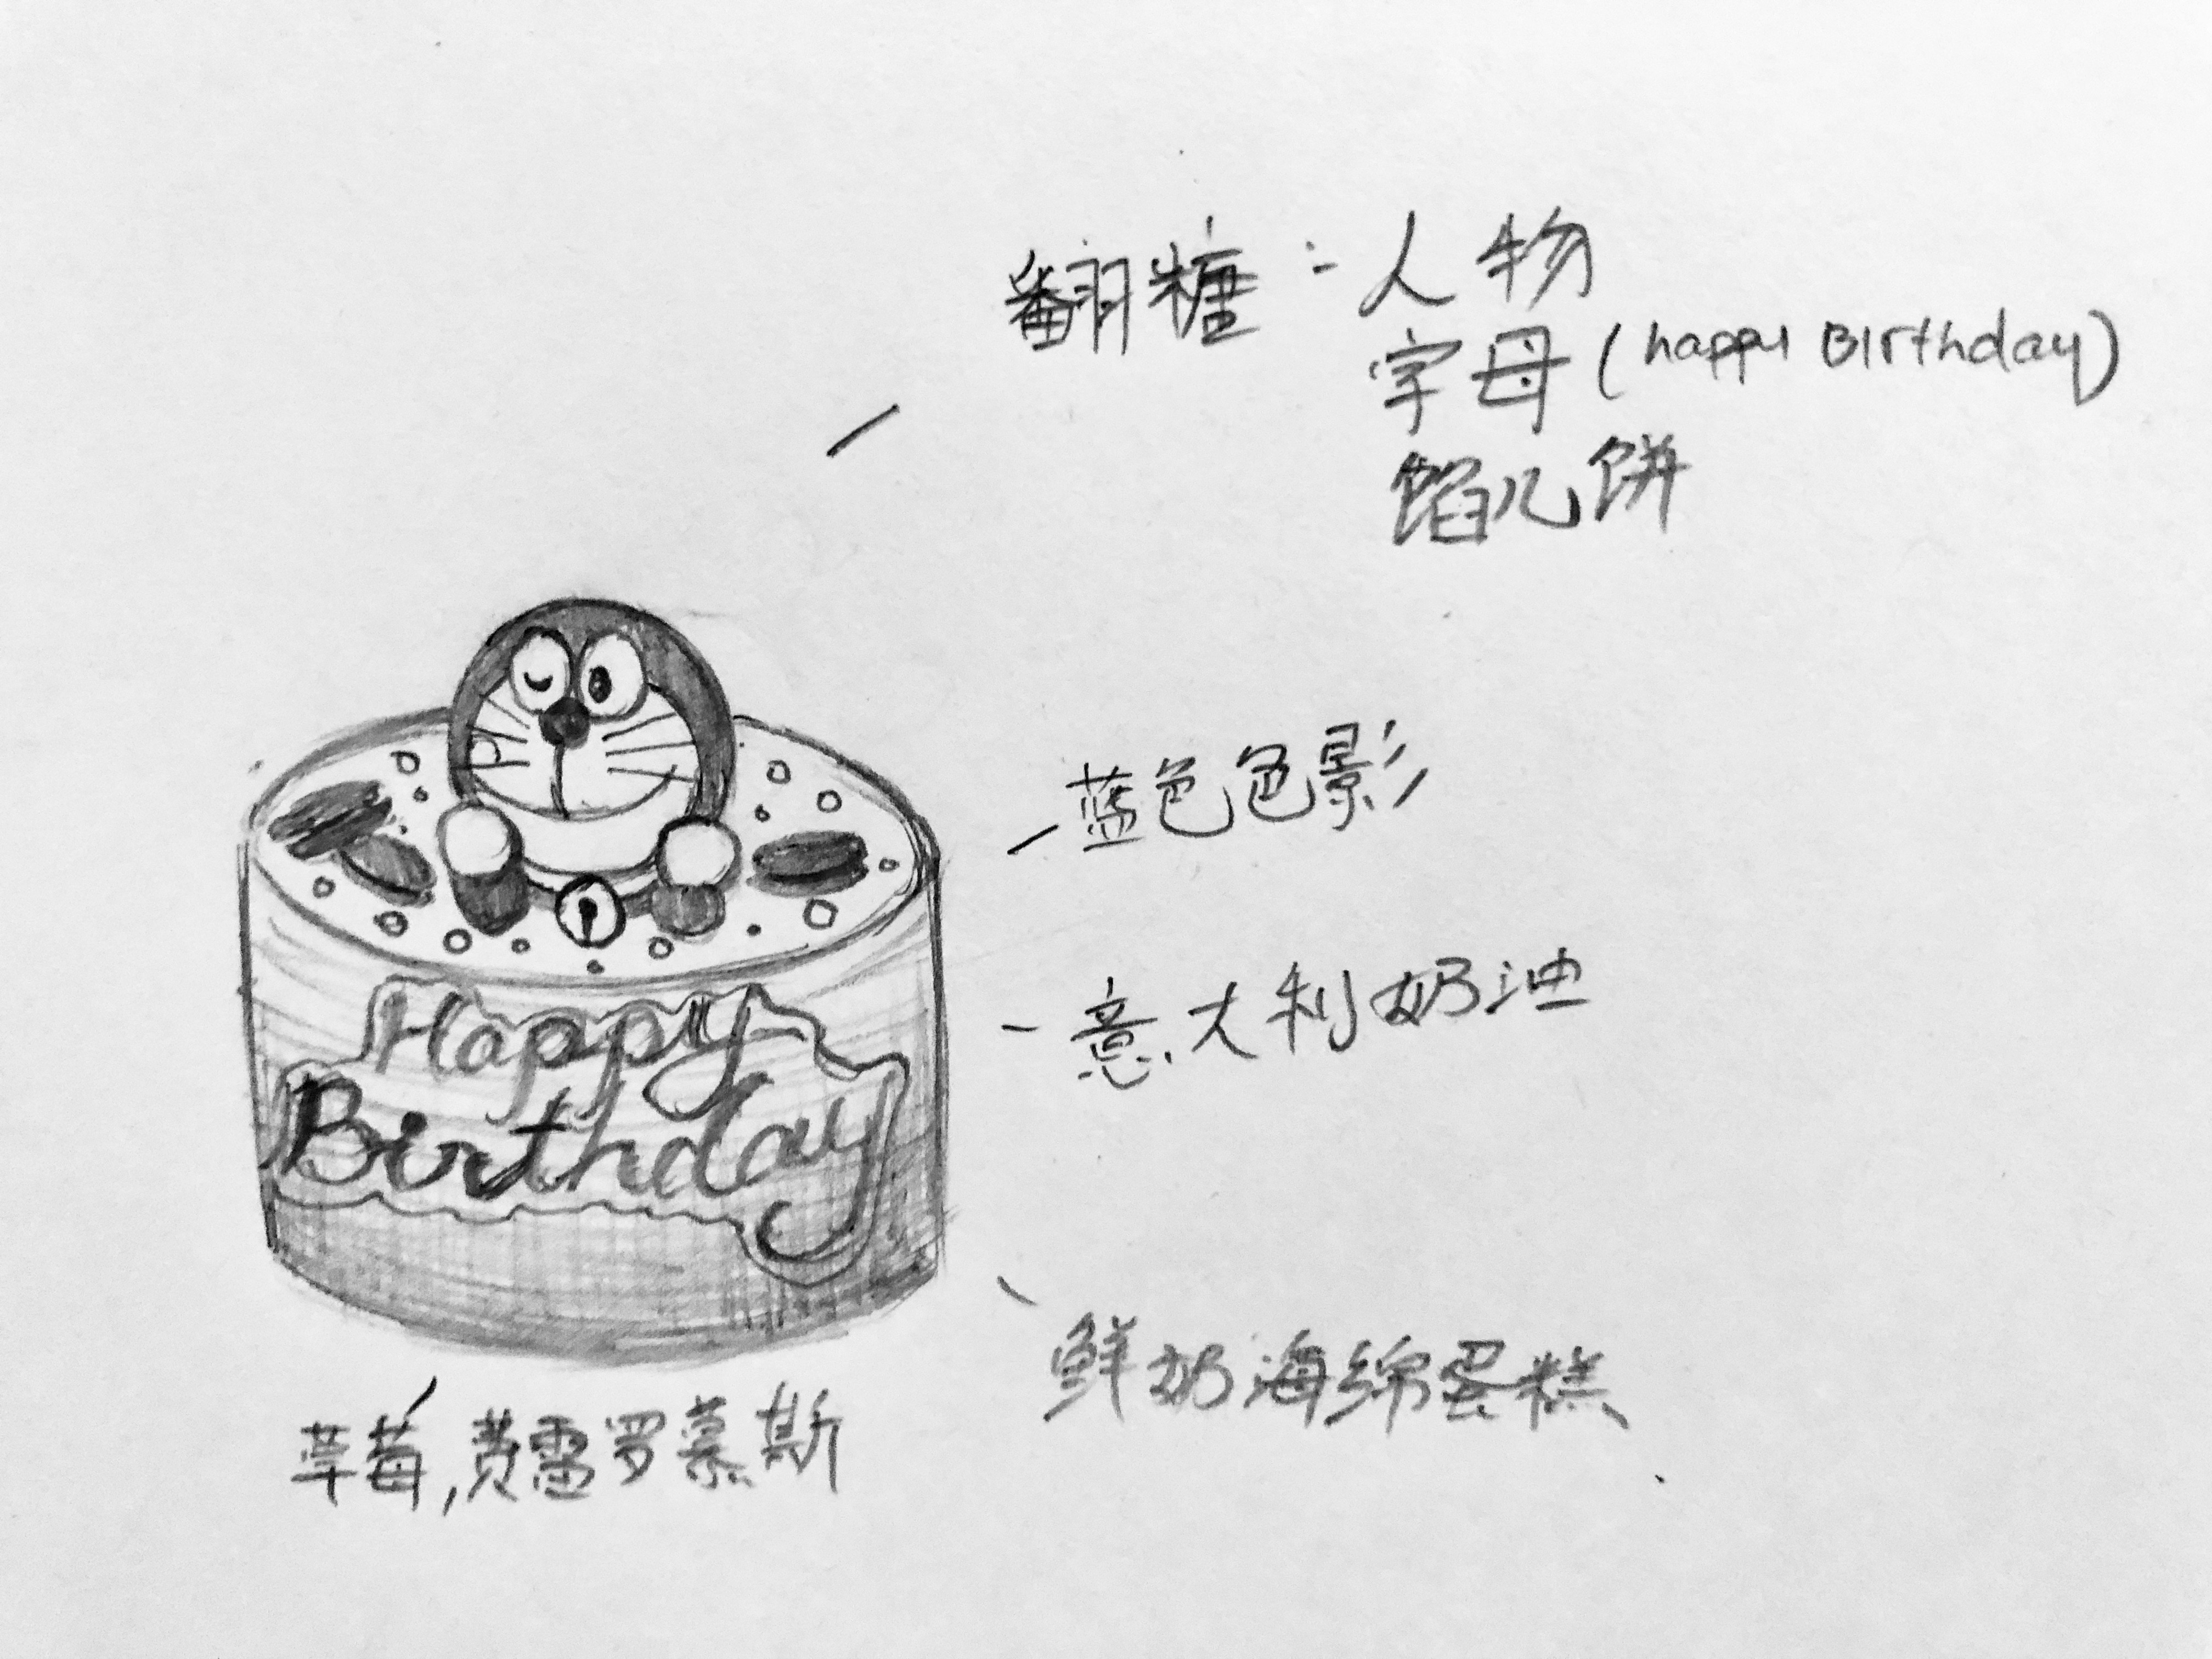 翻糖：人物
字母 (happy Birthday)
馅儿饼
蓝色色影
意大利奶油
鲜奶海绵蛋糕
Happy
Birthday
草莓,费雷罗慕斯